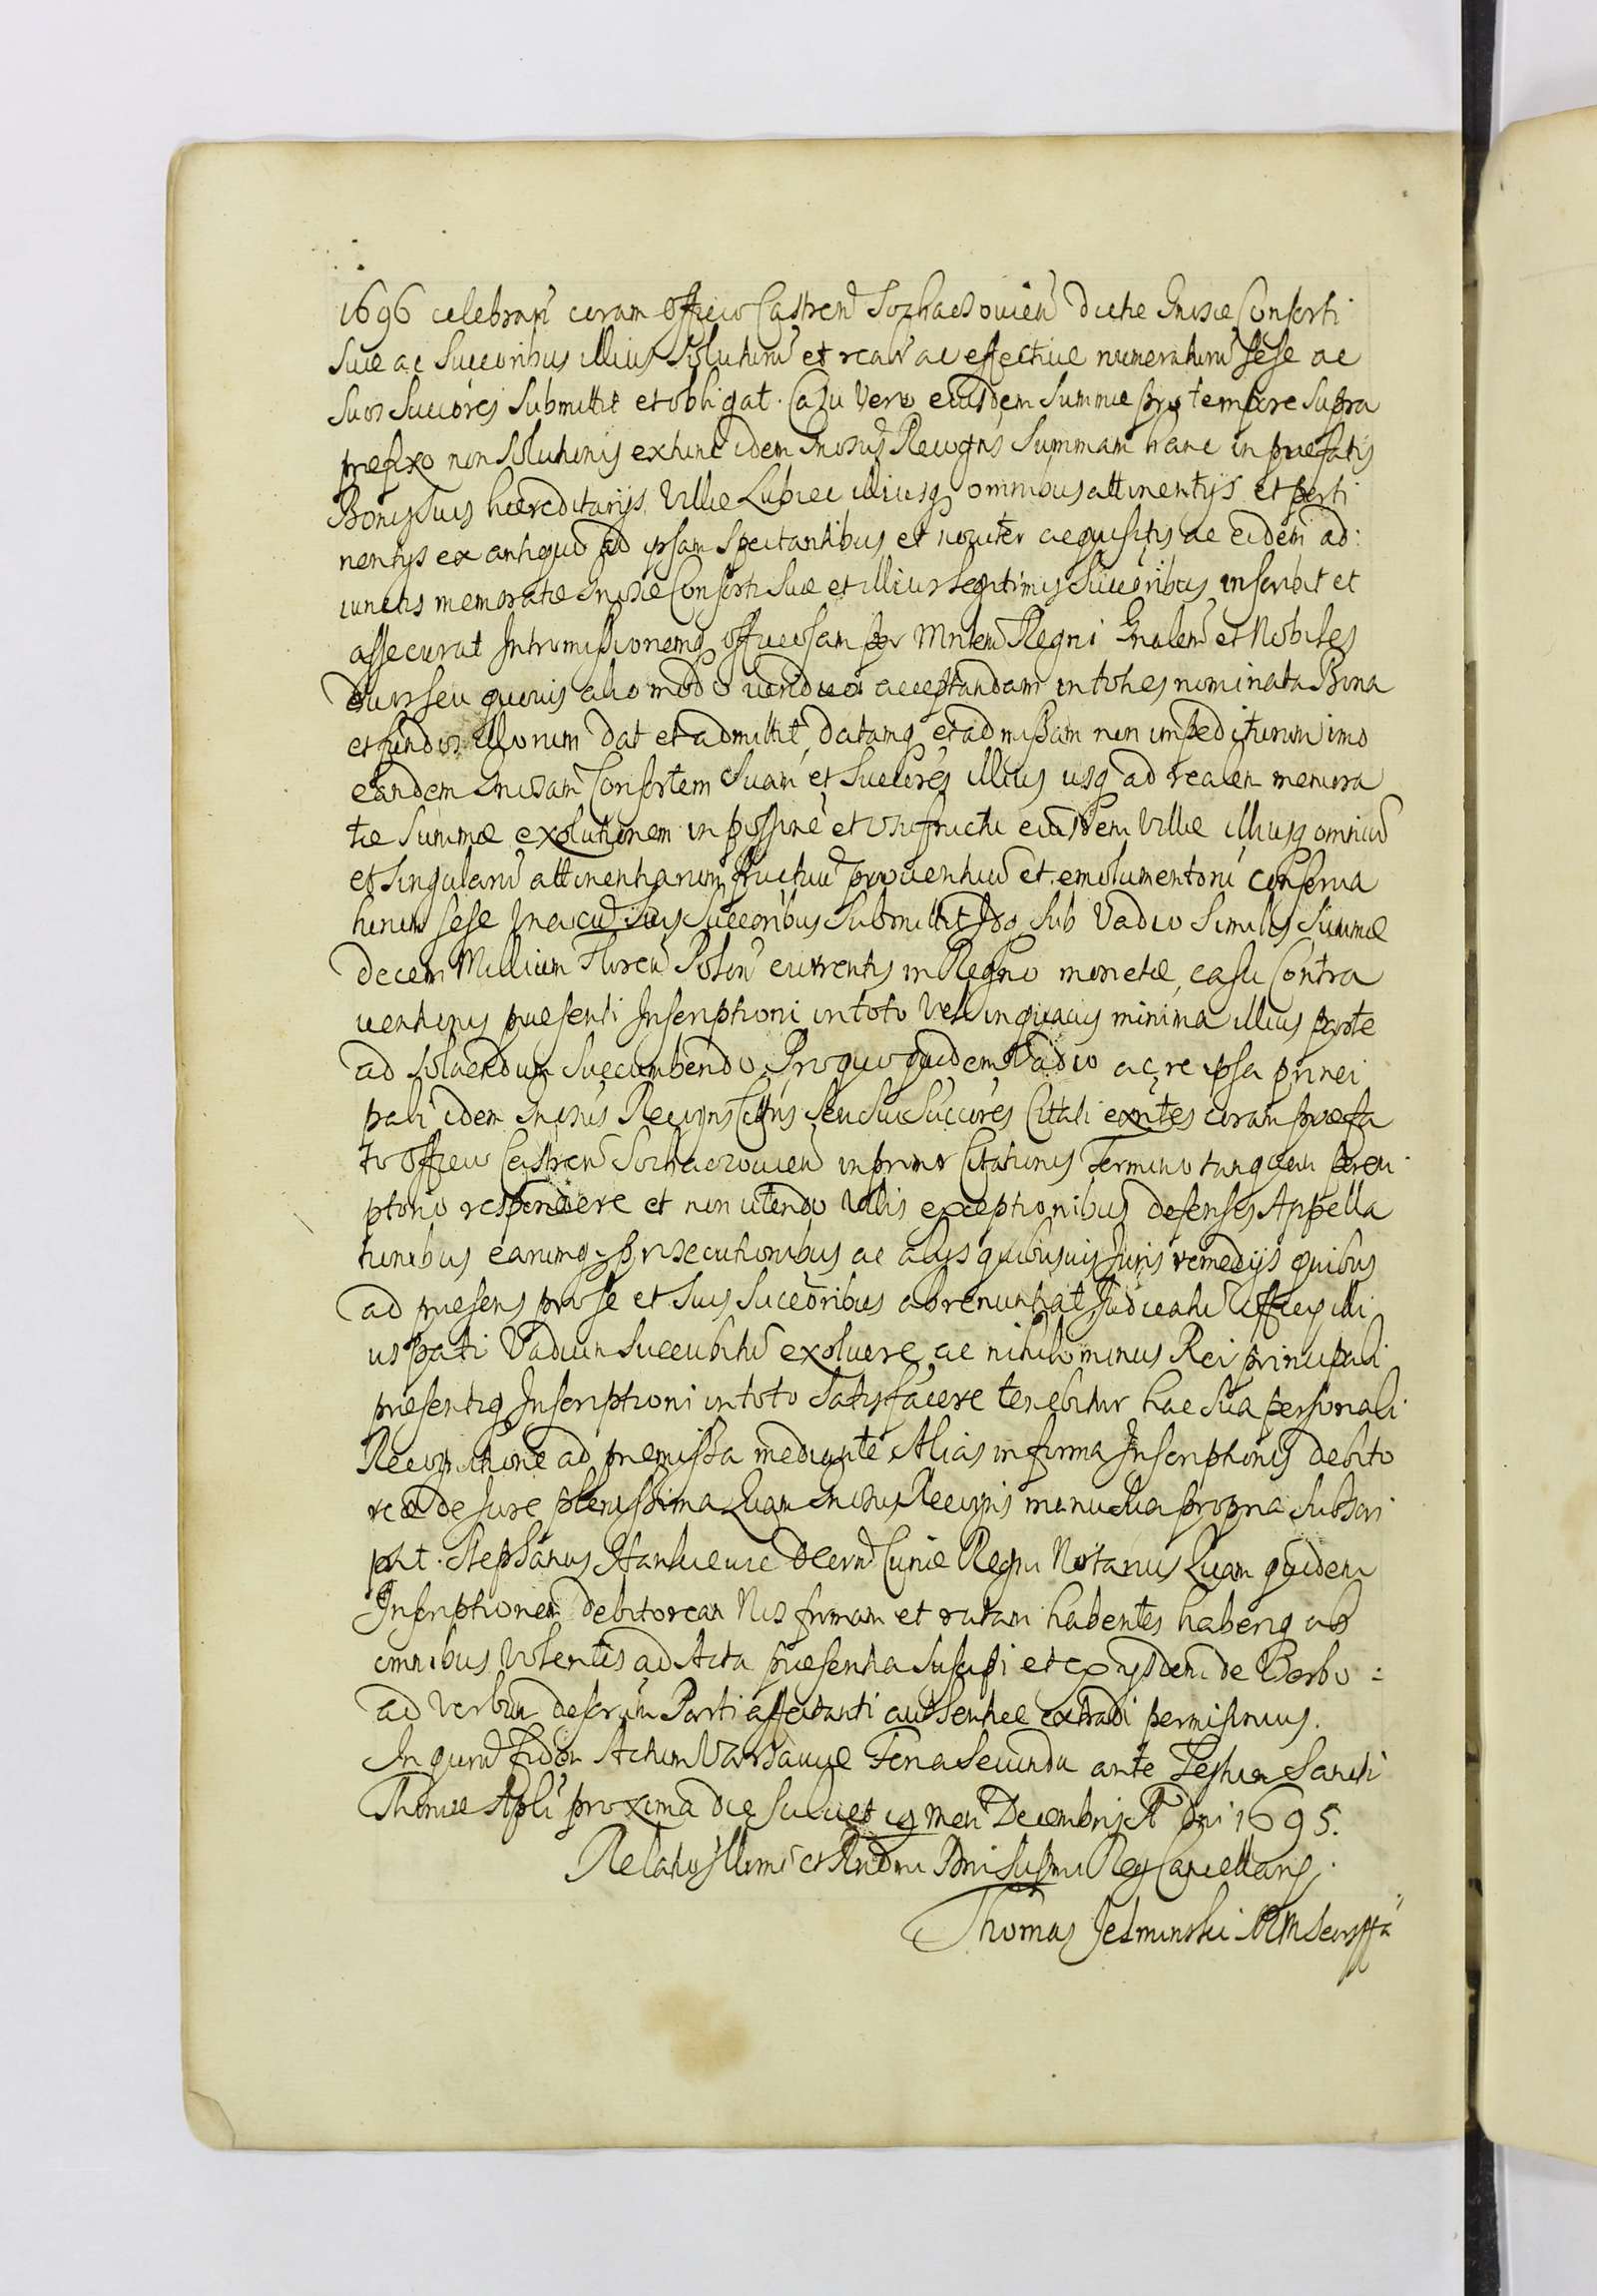 1696 celebran coram Officio Castren Sochaczovien dictae Gnosae Consorti
Suae ac Succoribus illius soluturu et realr ac effective numeraturu sese ac
Suos Succores Submittit et obligat. Casu Vero eiusdem Summae pro tempore supra
praefixo non Solutionis extunc idem Gnosus Recogns Summam hanc in praefatis
Bonis Suis haereditarijs Villae Lubiec illiusq omnibus attinentijs et perti
nentijs ex antiquo ad ipsam Spectantibus et noviter acquisitis ac eidem ad:
iunctis memoratae Gnosae Consorti Suae et illius legitimis Succoribus inscribit et
assecurat Intromissionemq officiosam per Mnlem Regni Gnalem et Nobiles
duos seu quovis alio modo acceptandam in toties nominata Bona
et fundos illorum dat et admittit, datamq et admissam non impediturum imo
eandem Gnosam Consortem Suam et Succores illius usq ad realem memora
tae Summae exolutionem in possne et usufructu eiusdem Villae illiusq omniu
et Singularu attinentiarum fructuu proventuu et emolumentoru conserva
turum sese una cu Suis Succoribus Submittit Idq Sub Vadio Similis Summae
decem Millium Floren Polon currentis in Regno monetae, casu Contra
ventionis praesenti Inscriptioni in toto Vel in quavis minima illius parte
ad solvendum Succumbendo Pro quo quidem Vadio ac re ipsa princi
pali idem Gnosus Recogns Cittus seu Sui Succores Cittati exntes coram praefa
to Officio Castren Sochaczovien in primo Citationis Termino tanquam perem
ptorio respondere et non utendo ullis exceptionibus defensis Appella
tionibus earumq prosecutionibus ac alijs quibusvis Juris remedijs quibus
ad praesens pro se et Suis Succoribus abrenuntiat Judicatu Officij illi
us pati Vadium Succubitu exolvere ac nihilominus Rei principali
praesentiq Inscriptioni in toto Satisfacere tenebitur hac Sua personali
Recognitione ad praemissa mediante Alias in forma Inscriptionis debito
reae de Jure plenissima Quam Gnosus Recogns manu Sua propria Subscri
psit. Stephanus Hankiewic Decru Curiae Regni Notarius Quam quidem
Inscriptionem debitoream Nos firmam et ratam habentes haberiq ab
omnibus Volentes ad Acta praesentia Suscipi et ex ijsdem de Verbo
ad Verbum descriptam Parti affectanti authentice extradi permisimus.
In quoru fidem Actum Varsaviae Feria Secunda ante Festum Sancti
Thomae Apli proxima die Scilicet 19 men Decembris A Dni 1695.
Relatio Illmi et Rndmi Dni Supmi Reg Cancellarij.
Thomas